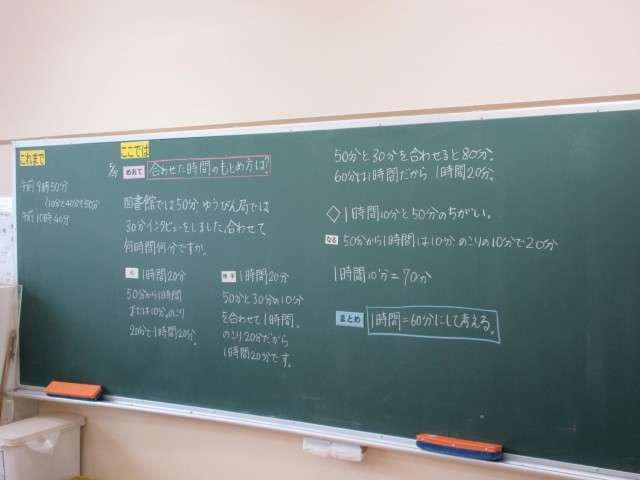 これまで
午前9時50分
10分と40分で50分
午前10時40分
ここでは
めあて 合わせた時間のもとめ方は?
図書館では50分、ゆうびん局では
30分インタビューをしました。合わせて
何時間何分ですか。
1時間20分
50分から1時間
または10分。のこり
20分で1時間20分。
1時間20分
50分と30分の10分
を合わせて1時間。
のこり20分だから
1時間20分です。
50分と30分を合わせると80分。
60分は1時間だから、1時間20分。
◇1時間10分と50分のちがい。
なる 50分から1時間は10分、のこりの10分で20分
1時間10分=70分
まとめ 1時間=60分にして考える。